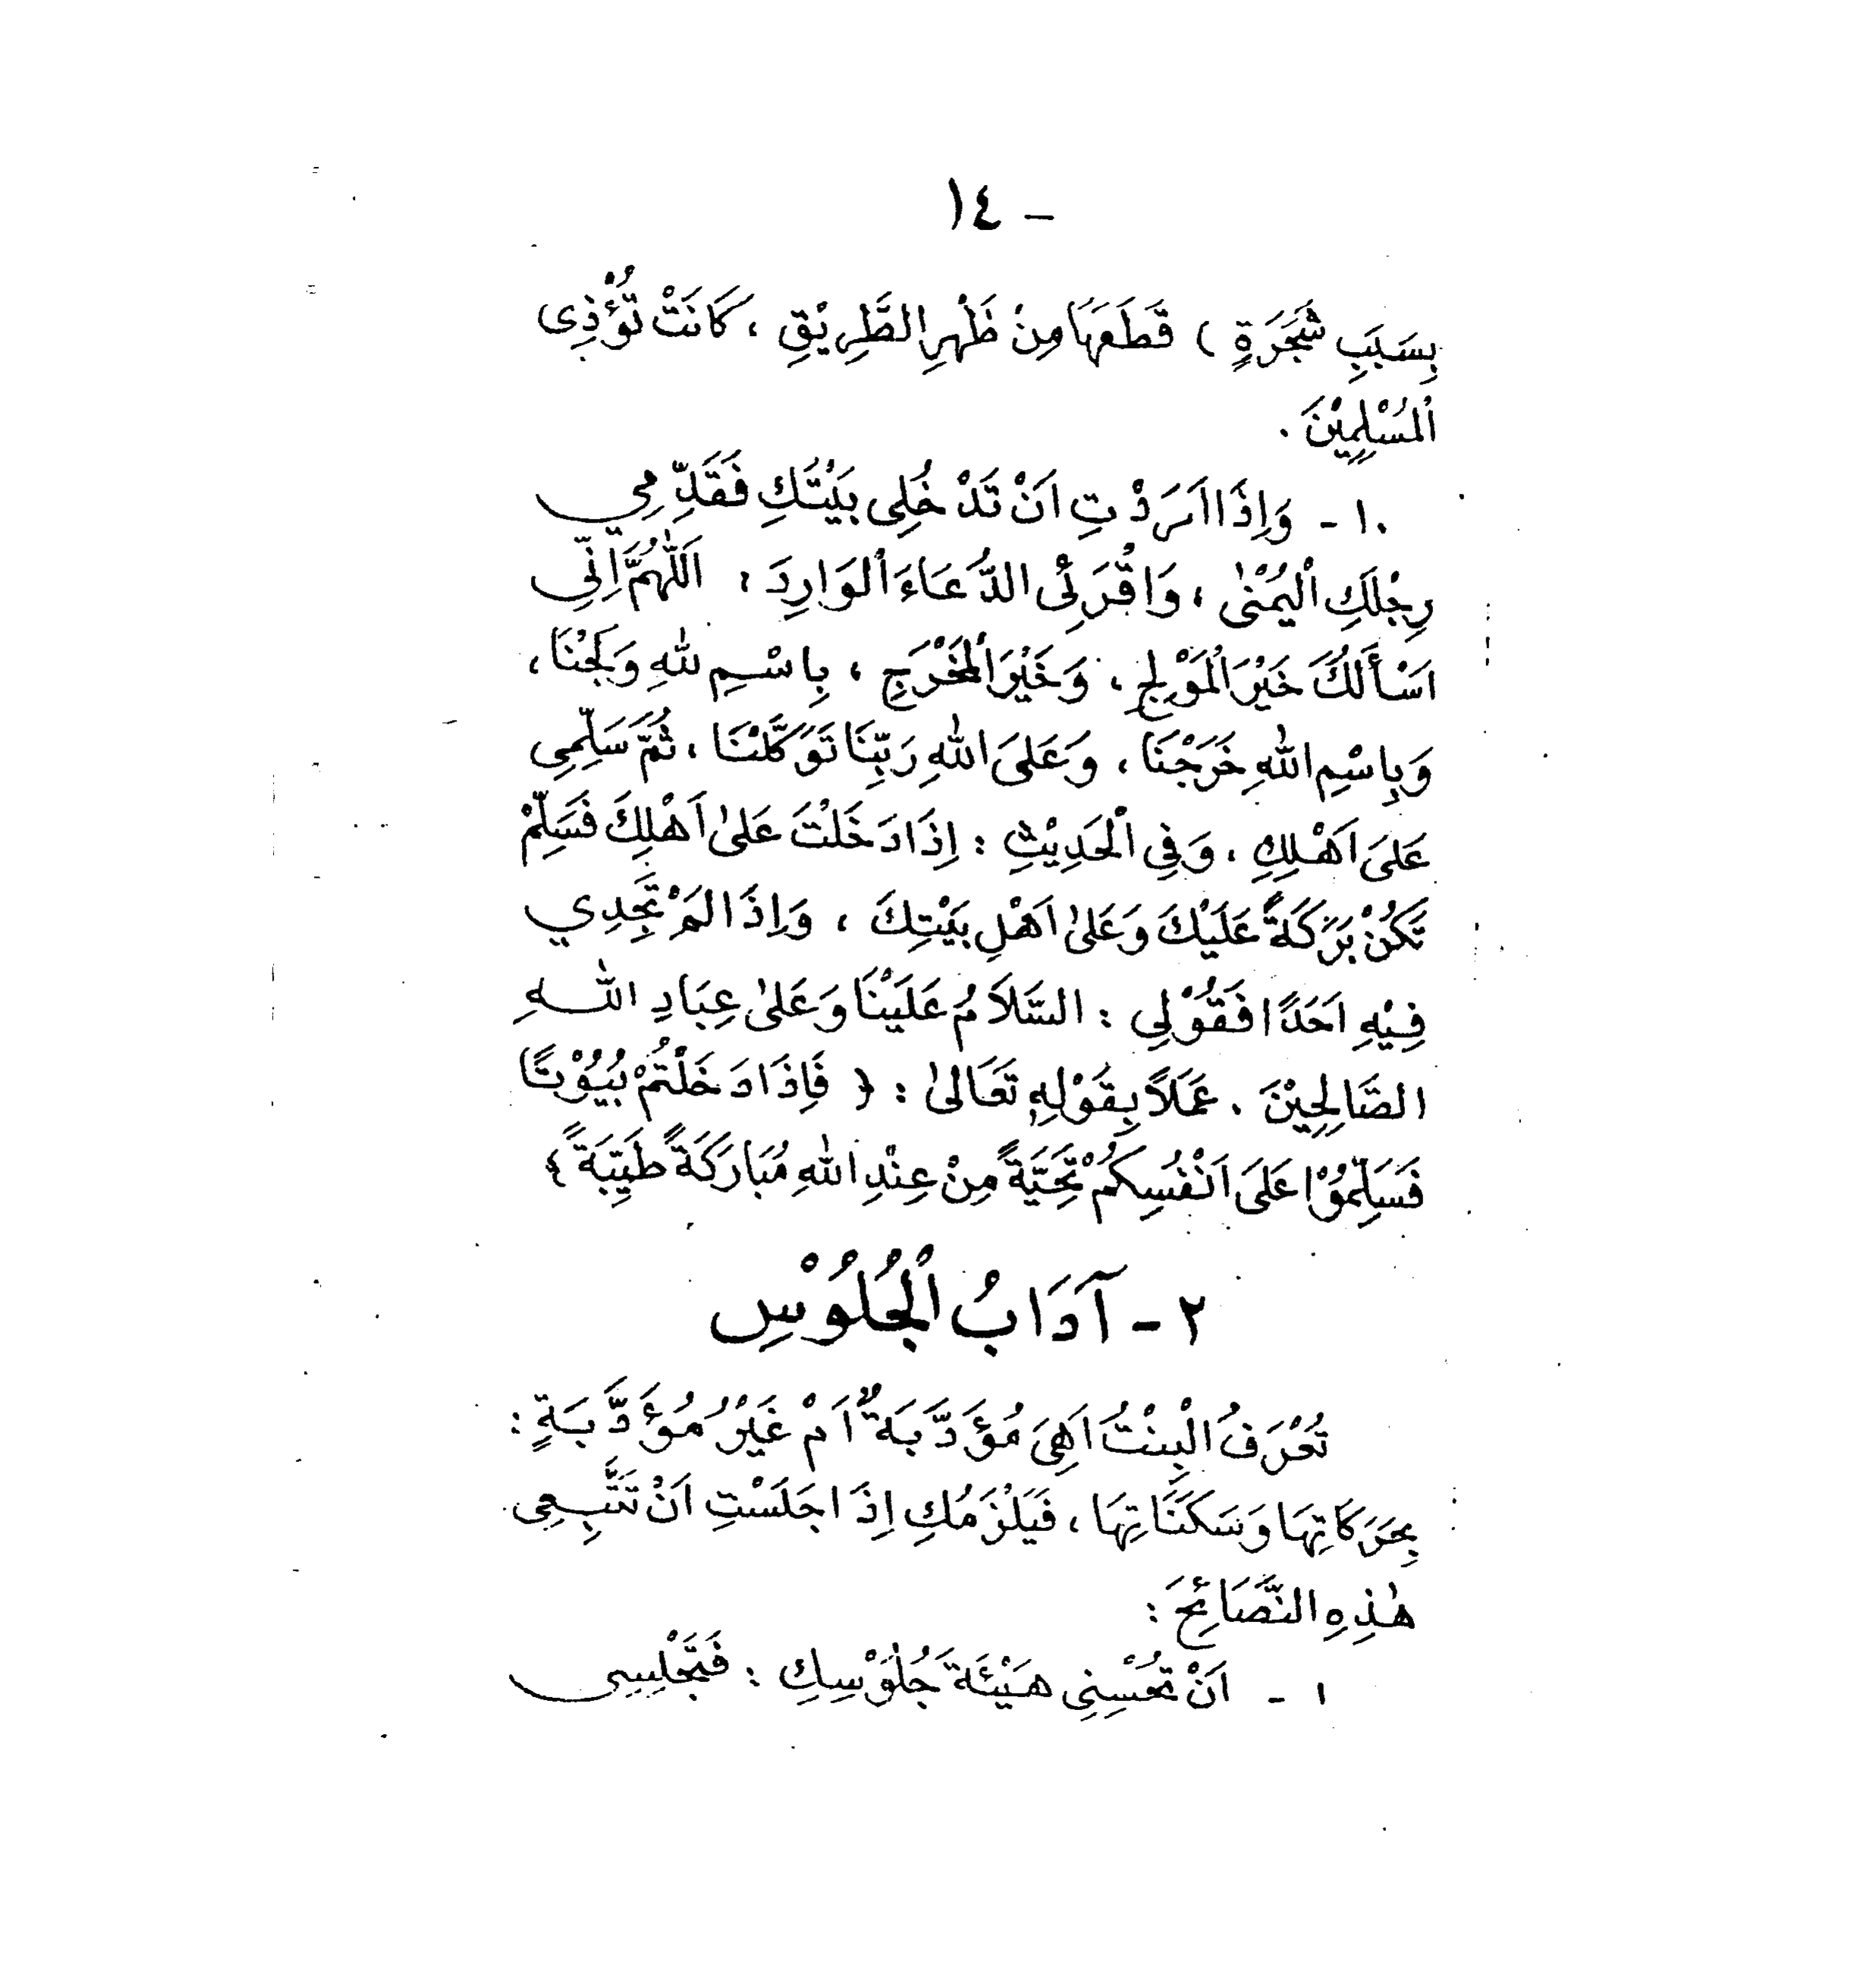 - ١٤
بِسَبَبِ شَجَرَةٍ ) قَطَعَهَا مِنْ ظَهْرِ الطَّرِيْقِ ، كَانَتْ تُؤْذِى
اْلمُسْلِمِيْنَ .
١٠ - وَاِذَا اَرَدْتِ اَنْ تَدْخُلِى بَيْتَكِ فَقَدِّمِي
رِجْلَكِ اْليُمْنٰى ، وَاقْرَئِى الدُّعَاءَ اْلوَارِدَ : اَللّٰهُمَّ اِنِّي
اَسْأَلُكَ خَيْرَ اْلمَوْلِجِ ، وَخَيْرَ اْلمَخْرَجِ ، بِاسْمِ للهِ وَلَجْنَا ،
وَبِاسْمِ اللهِ خَرَجْنَا ، وَعَلَى اللهِ رَبِّنَا تَوَكَّلْنَا ، ثُمَّ سَلِّمِى
عَلَى اَهْلِكِ . وَفِى اْلحَدِيْثِ : اِذَا دَخَلْتَ عَلىٰ اَهْلِكَ فَسَلِّمْ
تَكُنْ بَرَكَةً عَلَيْكَ وَعَلىٰ اَهْلِ بَيْتِكَ ، وَاِذَا لَمْ تَجِدِي
فِيْهِ اَحَدًا فَقُوْلِى : السَّلاَمُ عَلَيْنَا وَعَلىٰ عِبَادِ اللهِ
الصَّالِحِيْنَ . عَمَلاً بِقَوْلِهِ تَعَالىٰ : { فَاِذَا دَخَلْتُمْ بُيُوْتًا
فَسَلِّمُوْا عَلَى اَنْفُسِكُمْ تَحِيَّةً مِنْ عِنْدِ اللهِ مُبَارَكَةً طَيِّبَةً }
٢ - آدَابُ اْلجُلُوْسِ
تُعْرَفُ اْلبِنْتُ اَهِىَ مُؤَدَّبَةٌ اَمْ غَيْرُ مُؤَدَّبَةٍ :
بِحَرَكَاتِهَا وَسَكَنَاتِهَا ، فَيَلْزَمُكِ اِذَا جَلَسْتِ اَنْ تَتَّبِعِى
هٰذِهِ النَّصَائِحَ :
١ - اَنْ تُحْسِنِى هَيْئَةَ جُلُوْسِكِ : فَتَجْلِسِى